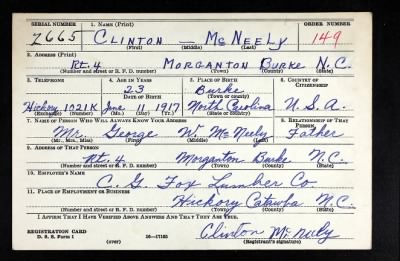 SERIAL NUMBER 1. NAME (Print) ORDER NUMBER
2665 CLINTON — McNEELY 149
(First) (Middle) (Last)
2. ADDRESS (Print)
Rt. 4 MORGANTON BURKE N.C.
(Number and street or R. F. D. number) (Town) (County) (State)
3. TELEPHONE 4. AGE IN YEARS 5. PLACE OF BIRTH 6. COUNTRY OF CITIZENSHIP
23 Burke
DATE OF BIRTH (Town or county)
Hickory 1021K June 11 1917 North Carolina U.S.A.
(Exchange) (Number) (Mo.) (Day) (Yr.) (State or country)
7. NAME OF PERSON WHO WILL ALWAYS KNOW YOUR ADDRESS 8. RELATIONSHIP OF THAT PERSON
Mr. George W. McNeely Father
(Mr., Mrs., Miss) (First) (Middle) (Last)
9. ADDRESS OF THAT PERSON
Rt. 4 Morganton Burke N.C.
(Number and street or R. F. D. number) (Town) (County) (State)
10. EMPLOYER'S NAME
C. G. Fox Lumber Co.
11. PLACE OF EMPLOYMENT OR BUSINESS
Hickory Catawba N.C.
(Number and street or R. F. D. number) (Town) (County) (State)
I AFFIRM THAT I HAVE VERIFIED ABOVE ANSWERS AND THAT THEY ARE TRUE.
REGISTRATION CARD
D. S. S. Form 1 (over) 16—17105 Clinton McNeely
(Registrant's signature)